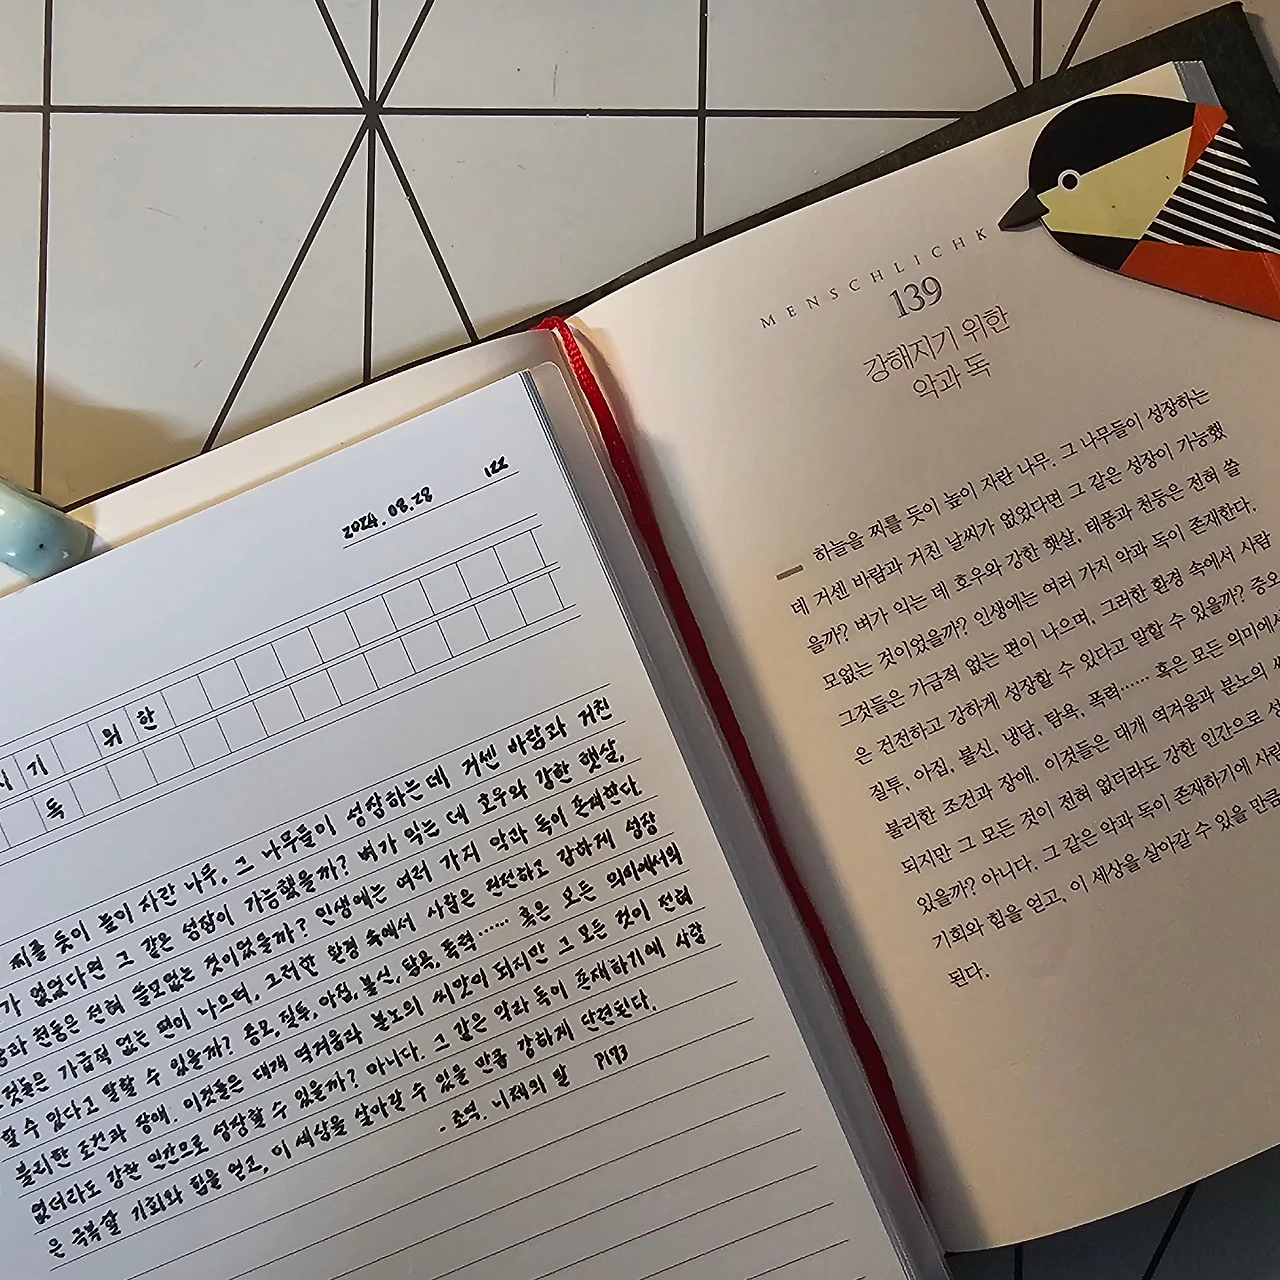 2024. 08. 28 122
기 위한
독
찌를 듯이 높이 자란 나무. 그 나무들이 성장하는데 거센 바람과 거친
가 없었다면 그 같은 성장이 가능했을까? 벼가 익는 데 호우와 강한 햇살,
과 천둥은 전혀 쓸모없는 것이었을까? 인생에는 여러 가지 악과 독이 존재한다.
것들은 가급적 없는 편이 나으며, 그러한 환경 속에서 사람은 건전하고 강하게 성장
할 수 있다고 말할 수 있을까? 증오, 질투, 아집, 불신, 탐욕, 폭력…… 혹은 모든 의미에서의
불리한 조건과 장애. 이것들은 대개 역겨움과 분노의 씨앗이 되지만 그 모든 것이 전혀
없더라도 강한 인간으로 성장할 수 있을까? 아니다. 그 같은 악과 독이 존재하기에 사람
은 극복할 기회와 힘을 얻고, 이 세상을 살아갈 수 있을 만큼 강하게 단련된다.
- 초역. 니체의 말 P173
MENSCHLICHK
139
강해지기 위한
악과 독
하늘을 찌를 듯이 높이 자란 나무. 그 나무들이 성장하는
데 거센 바람과 거친 날씨가 없었다면 그 같은 성장이 가능했
을까? 벼가 익는 데 호우와 강한 햇살, 태풍과 천둥은 전혀 쓸
모없는 것이었을까? 인생에는 여러 가지 악과 독이 존재한다.
그것들은 가급적 없는 편이 나으며, 그러한 환경 속에서 사람
은 건전하고 강하게 성장할 수 있다고 말할 수 있을까? 증오
질투, 아집, 불신, 냉담, 탐욕, 폭력…… 혹은 모든 의미에서
불리한 조건과 장애. 이것들은 대개 역겨움과 분노의
되지만 그 모든 것이 전혀 없더라도 강한 인간으로
있을까? 아니다. 그 같은 악과 독이 존재하기에
기회와 힘을 얻고, 이 세상을 살아갈 수 있을 만큼
된다.